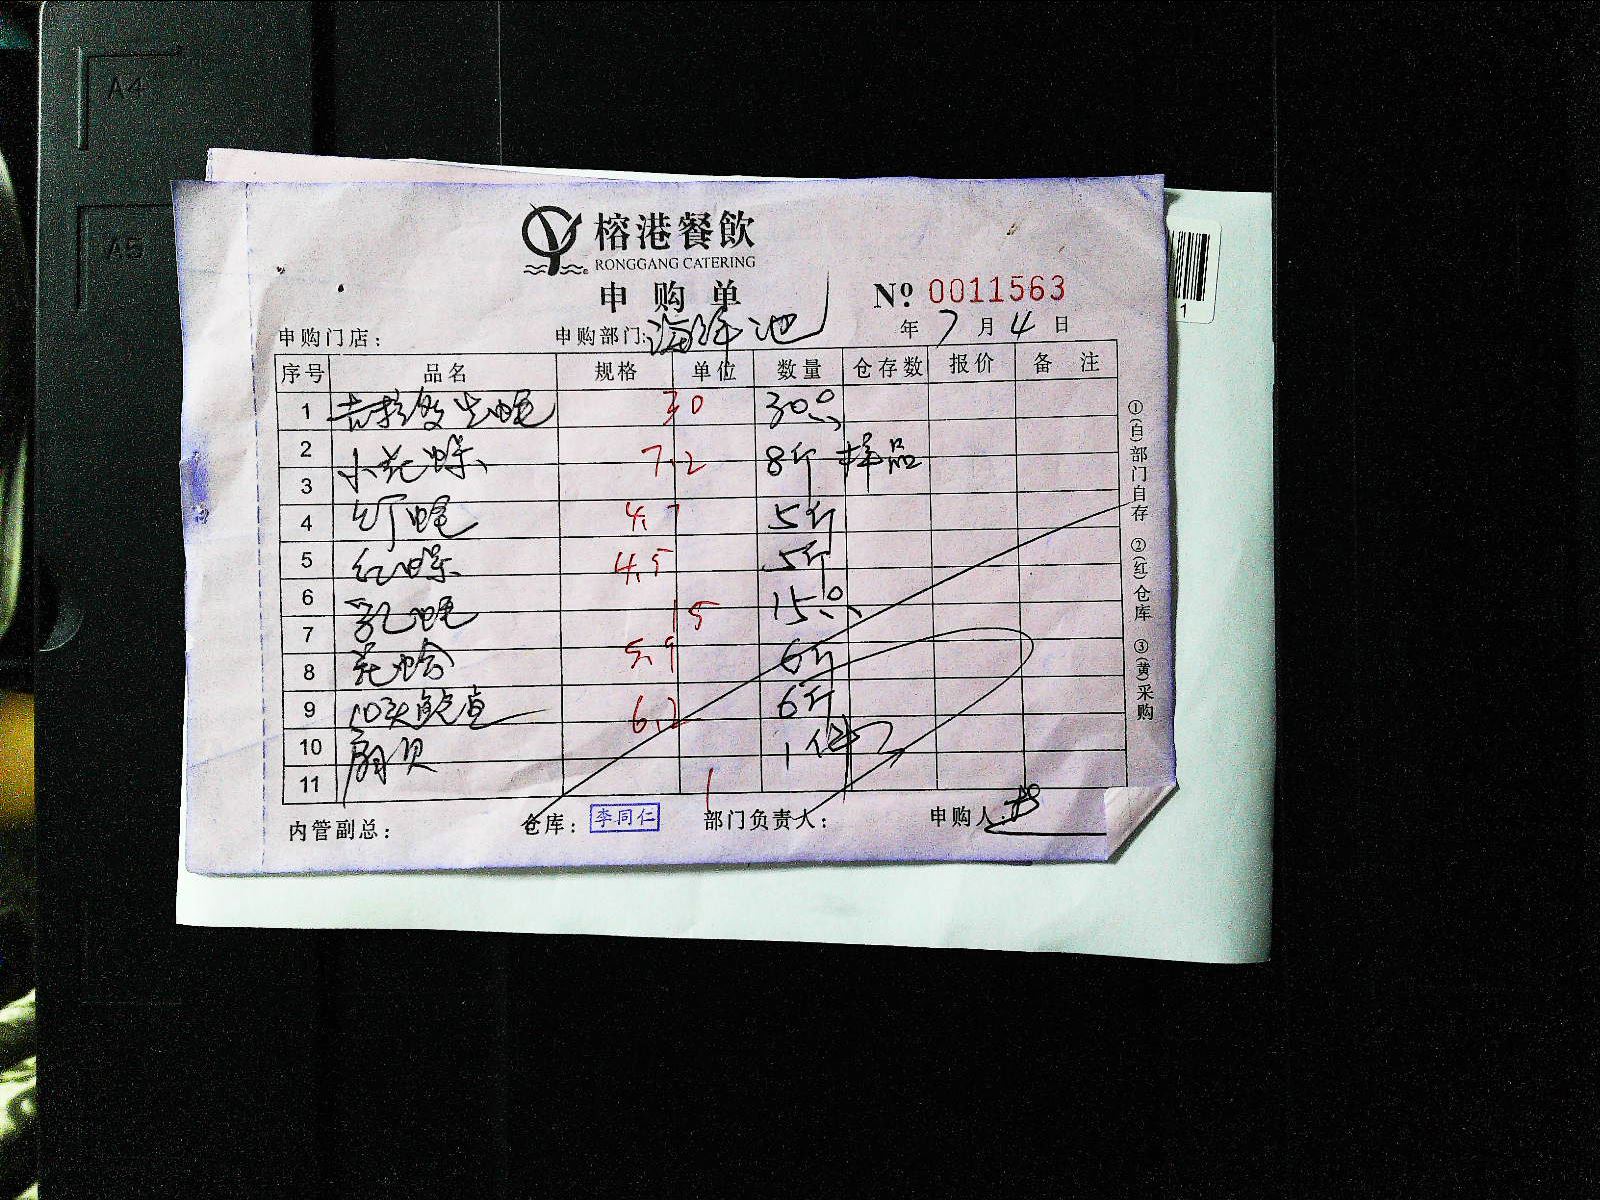 A4
A5
榕港餐飲
RONGGANG CATERING
申购单
№ 0011563
1
申购门店：
申购部门: 海鲜池
年 7 月 4 日
序号 品名 规格 单位 数量 仓存数 报价 备注
1 吉拉多生蚝 30 30只
2 小花螺 7.2 8斤 样品
3
4 4.7 5斤
5 红螺 4.5 5斤
6 乳蚝 15 15只
7
8 花蛤 5.9 6斤
9 10头鲍鱼 6.2 6斤
10 扇贝 1件
11 1
①(白)部门自存 ②(红)仓库 ③(黄)采购
内管副总： 仓库： 李同仁 部门负责人： 申购人：